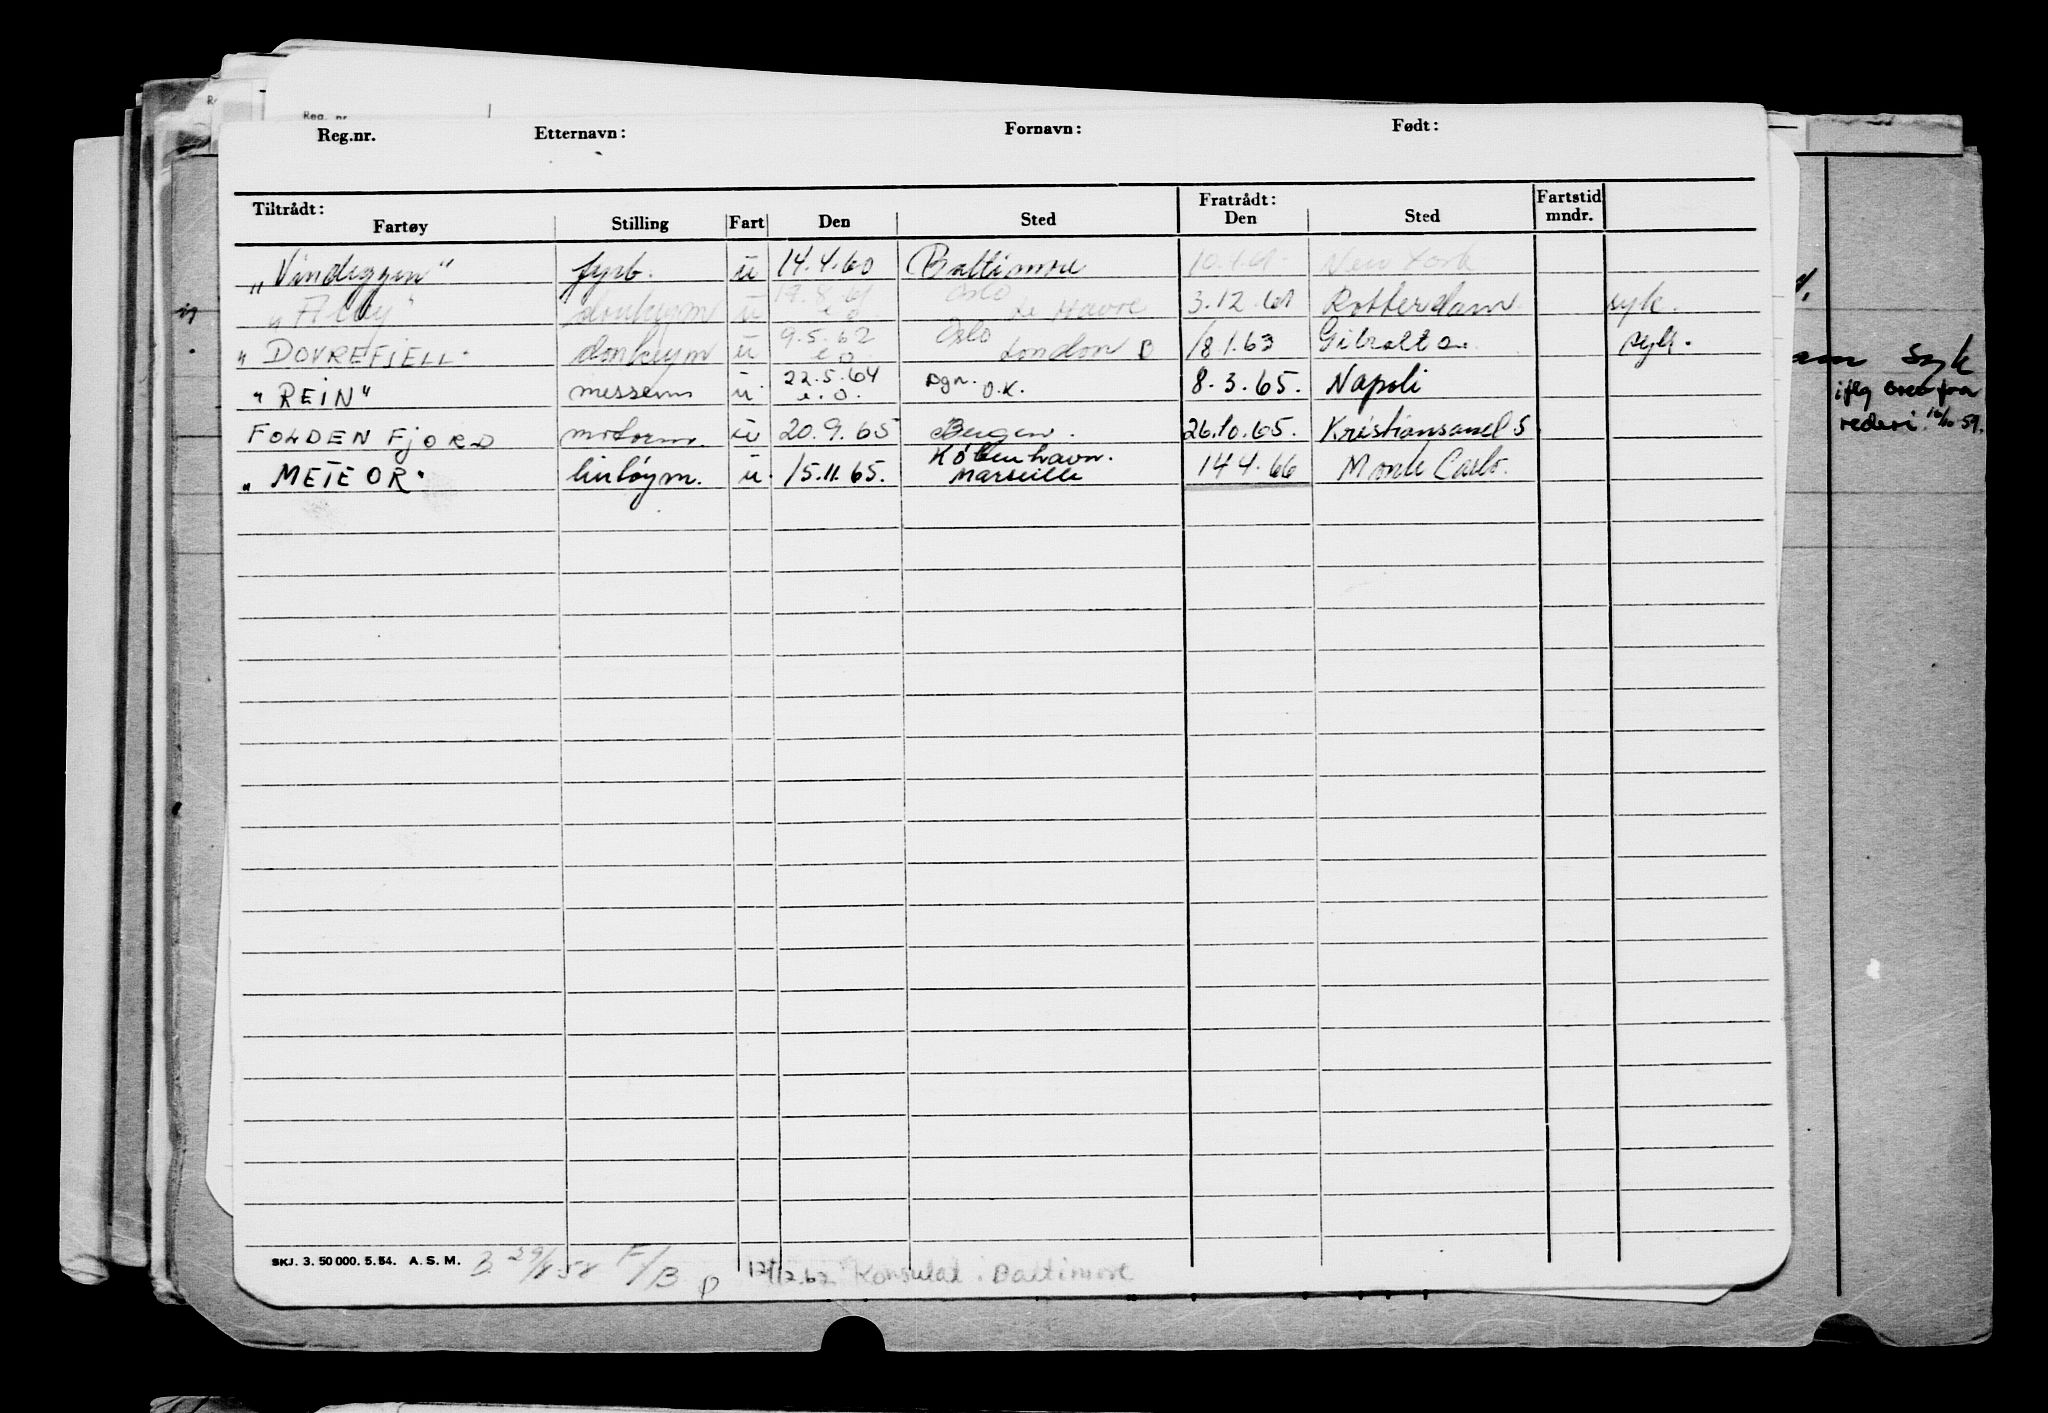 Reg. nr.
Reg.nr. Etternavn: Fornavn: Født:
Tiltrådt: Fratrådt: Fartstid
Fartøy Stilling Fart Den Sted Den Sted mndr.
"Vindeggen" fyrb. u 14.4.60 Baltimore 10.4.61 New York
17.8.61 Oslo
donkeym u e o Le Havre 3.12.61 Rotterdam syk.
9.5.62 Oslo
"DOVREFJELL" donkeym u e o London D 18.1.63 Gibralta syk.
22.5.64 Dgn.
"REIN" messem u. e.o. O.K. 8.3.65. Napoli
FOLDENFJORD motorm. u 20.9.65 Bergen. 26.10.65. Kristiansand S
København.
"METEOR" u. 15.11.65. Marseille 14 4.66 Monte Carlo.
Syk
rederi. 16/10 59.
SKJ. 3. 50 000. 5. 54. A. S. M. B. 29/8 58 F/B D 12/12.62 Konsulat i Baltimore